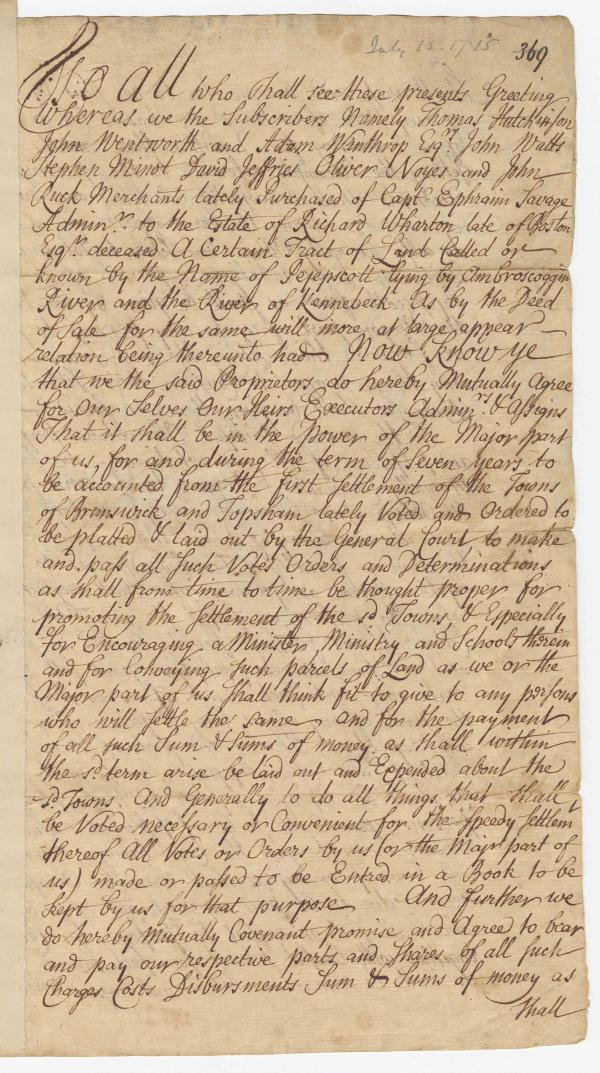 July 15. 1715
369
To all who shall see these presents Greeting
Whereas we the Subscribers Namely Thomas Hutchinson
John Wentworth and Adam Winthrop Esqrs John Watts
Stephen Minot David Jeffries Oliver Noyes and John
Ruck Merchants lately Purchased of Capt. Ephraim Savage
Adminr. to the Estate of Richard Wharton late of Boston
Esqr. deceased A Certain Tract of Land Called or
known by the Name of Pejepscott lying by Ambroscoggin
River and the River of Kennebeck As by the Deed
of Sale for the same will more at large appear
relation being thereunto had Now know ye
that we the said Proprietors do hereby Mutually Agree
for Our Selves Our Heirs Executors Adminrs. & Assigns
That it shall be in the power of the Major part
of us, for and during the term of Seven years to
be accounted from the first Settlement of the Towns
of Brunswick and Topsham lately Voted and Ordered to
be platted & laid out by the General Court to make
and pass all such Votes Orders and Determinations
as shall from time to time be thought proper for
promoting the Settlement of the sd. Towns, & Especially
for Encouraging a Minister, Ministry and Schools therein
and for Conveying such parcels of Land as we or the
Major part of us shall think fit to give to any persons
who will settle the same and for the payment
of all such Sum & Sums of money as shall within
the sd term arise be laid out and Expended about the
sd Towns. And Generally to do all things that shall
be Voted necessary or Convenient for the speedy settlemt
thereof All Votes or Orders by us (or the Majr part of
us) made or passed to be Entred in a Book to be
kept by us for that purpose And further we
do hereby Mutually Covenant promise and Agree to bear
and pay our respective parts and Shares of all such
Charges Costs Disbursments Sum & Sums of money as
shall